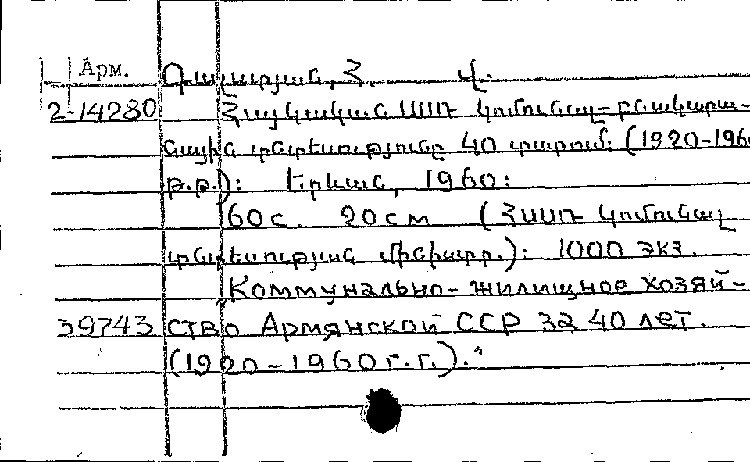 Арм. Գալստյան, Հ. Վ.
2-14280 Հայկական ՍՍՌ կոմունալ-բնակարա-
նային տնտեսությունը 40 տարում: (1920-1960
թ.թ.): Երևան, 1960:
60с. 20см (ՀՍՍՌ կոմունալ
տնտեսության մինիստր.): 1000 экз.
"Коммунально-жилищное хозяй-
39743 ство Армянской ССР за 40 лет.
(1920-1960г.г.)."